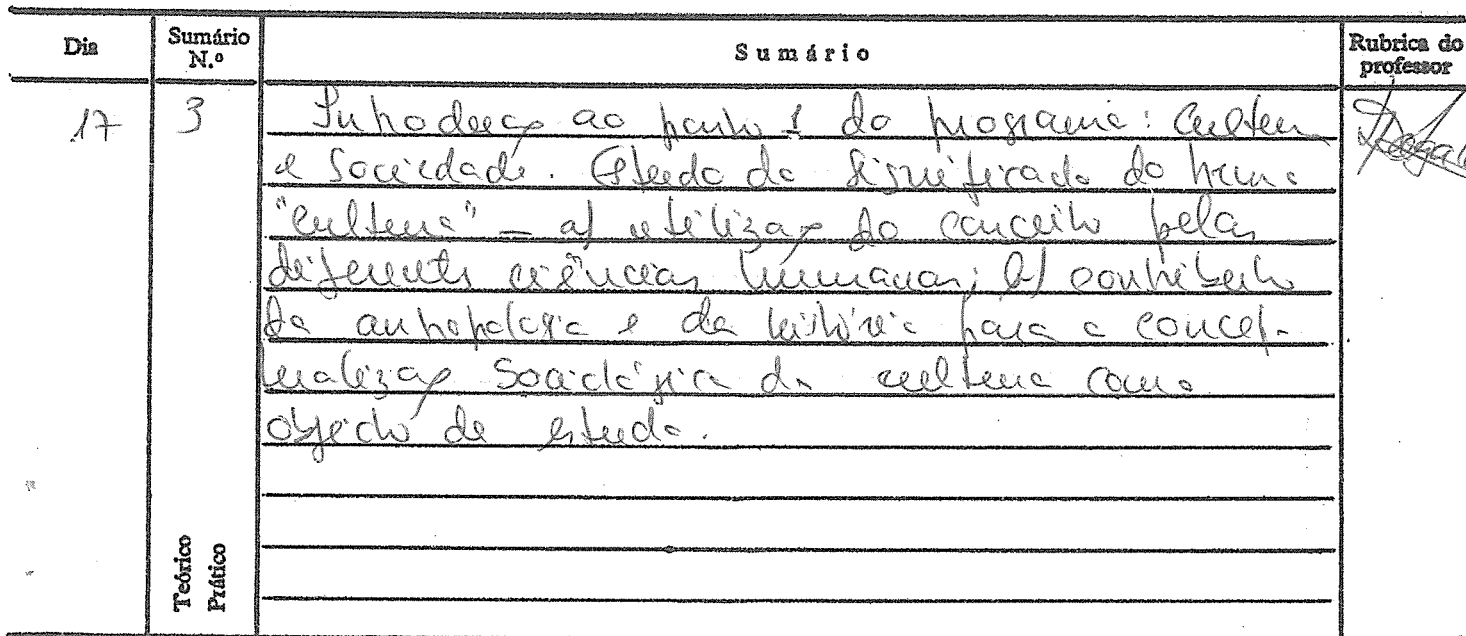 Dia
Sumário N.º
Sumário
Rubrica do professor
17
3
Introdução ao ponto 1 do programa: Cultura
e Sociedade. Estudo do significado do termo
"cultura" – a) utilização do conceito pelas
diferentes ciências humanas; b) contributo
da antropologia e da história para a concep-
tualização Sociológica da cultura como
objecto de estudo.
Teórico
Prático